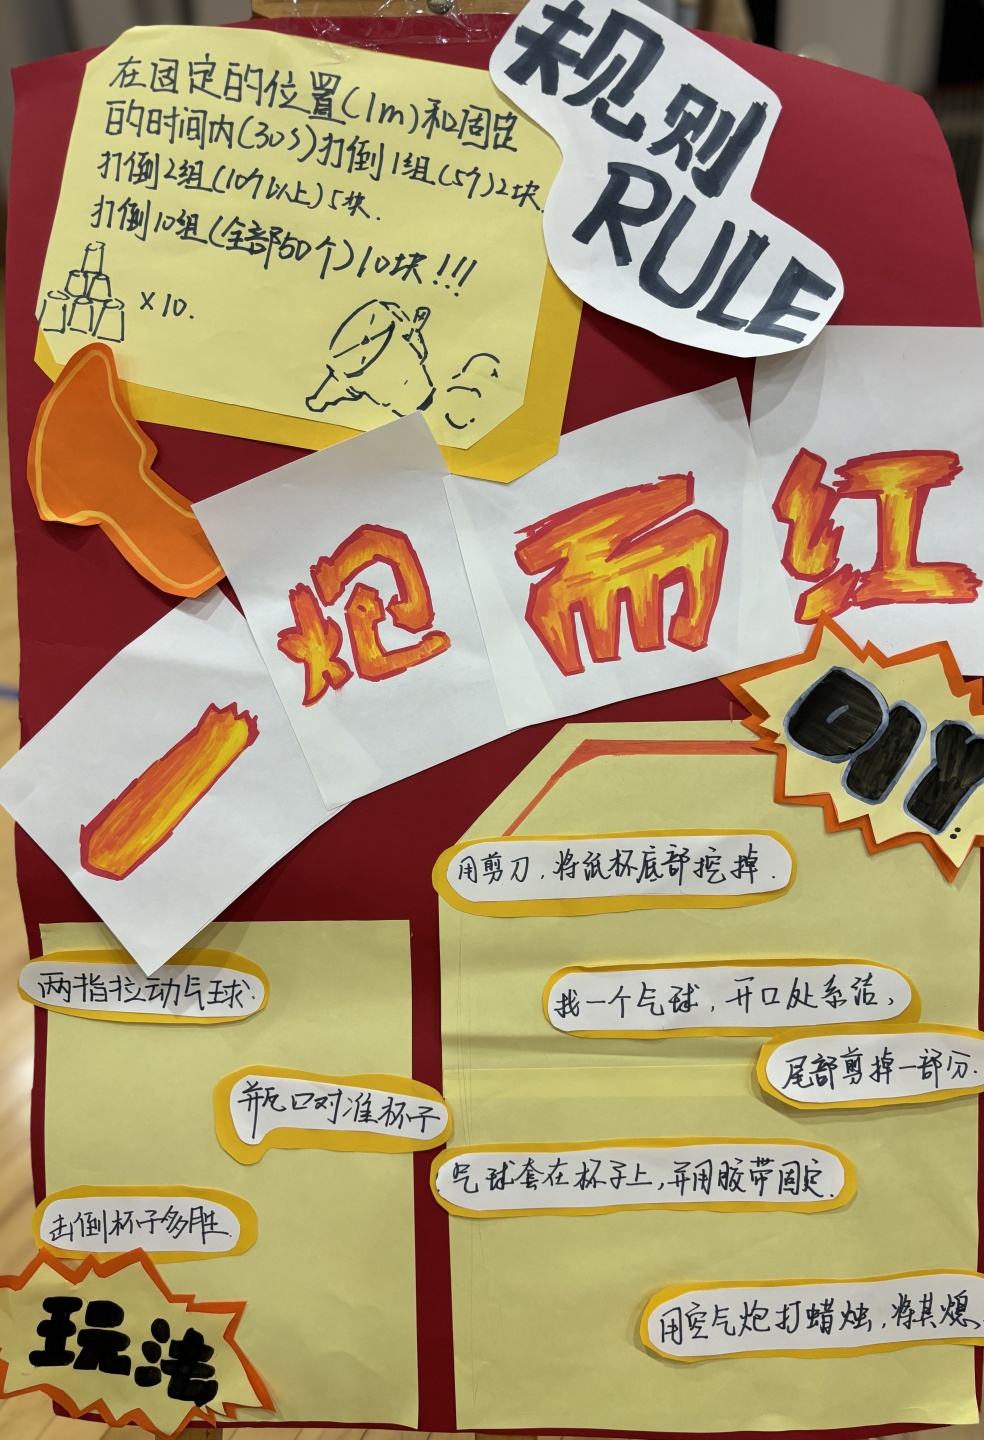 规则
RULE
在固定的位置(1m)和固定
的时间内(30s)打倒1组(5个)2块.
打倒2组(10个以上)5块.
打倒10组(全部50个)10块!!!
×10.
一炮而红
DIY
用剪刀,将纸杯底部挖掉.
找一个气球,开口处系洁,
尾部剪掉一部分.
气球套在杯子上,并用胶带固定.
用空气炮打蜡烛,将其熄
两指拉动气球.
瓶口对准杯子
击倒杯子多胜.
玩法